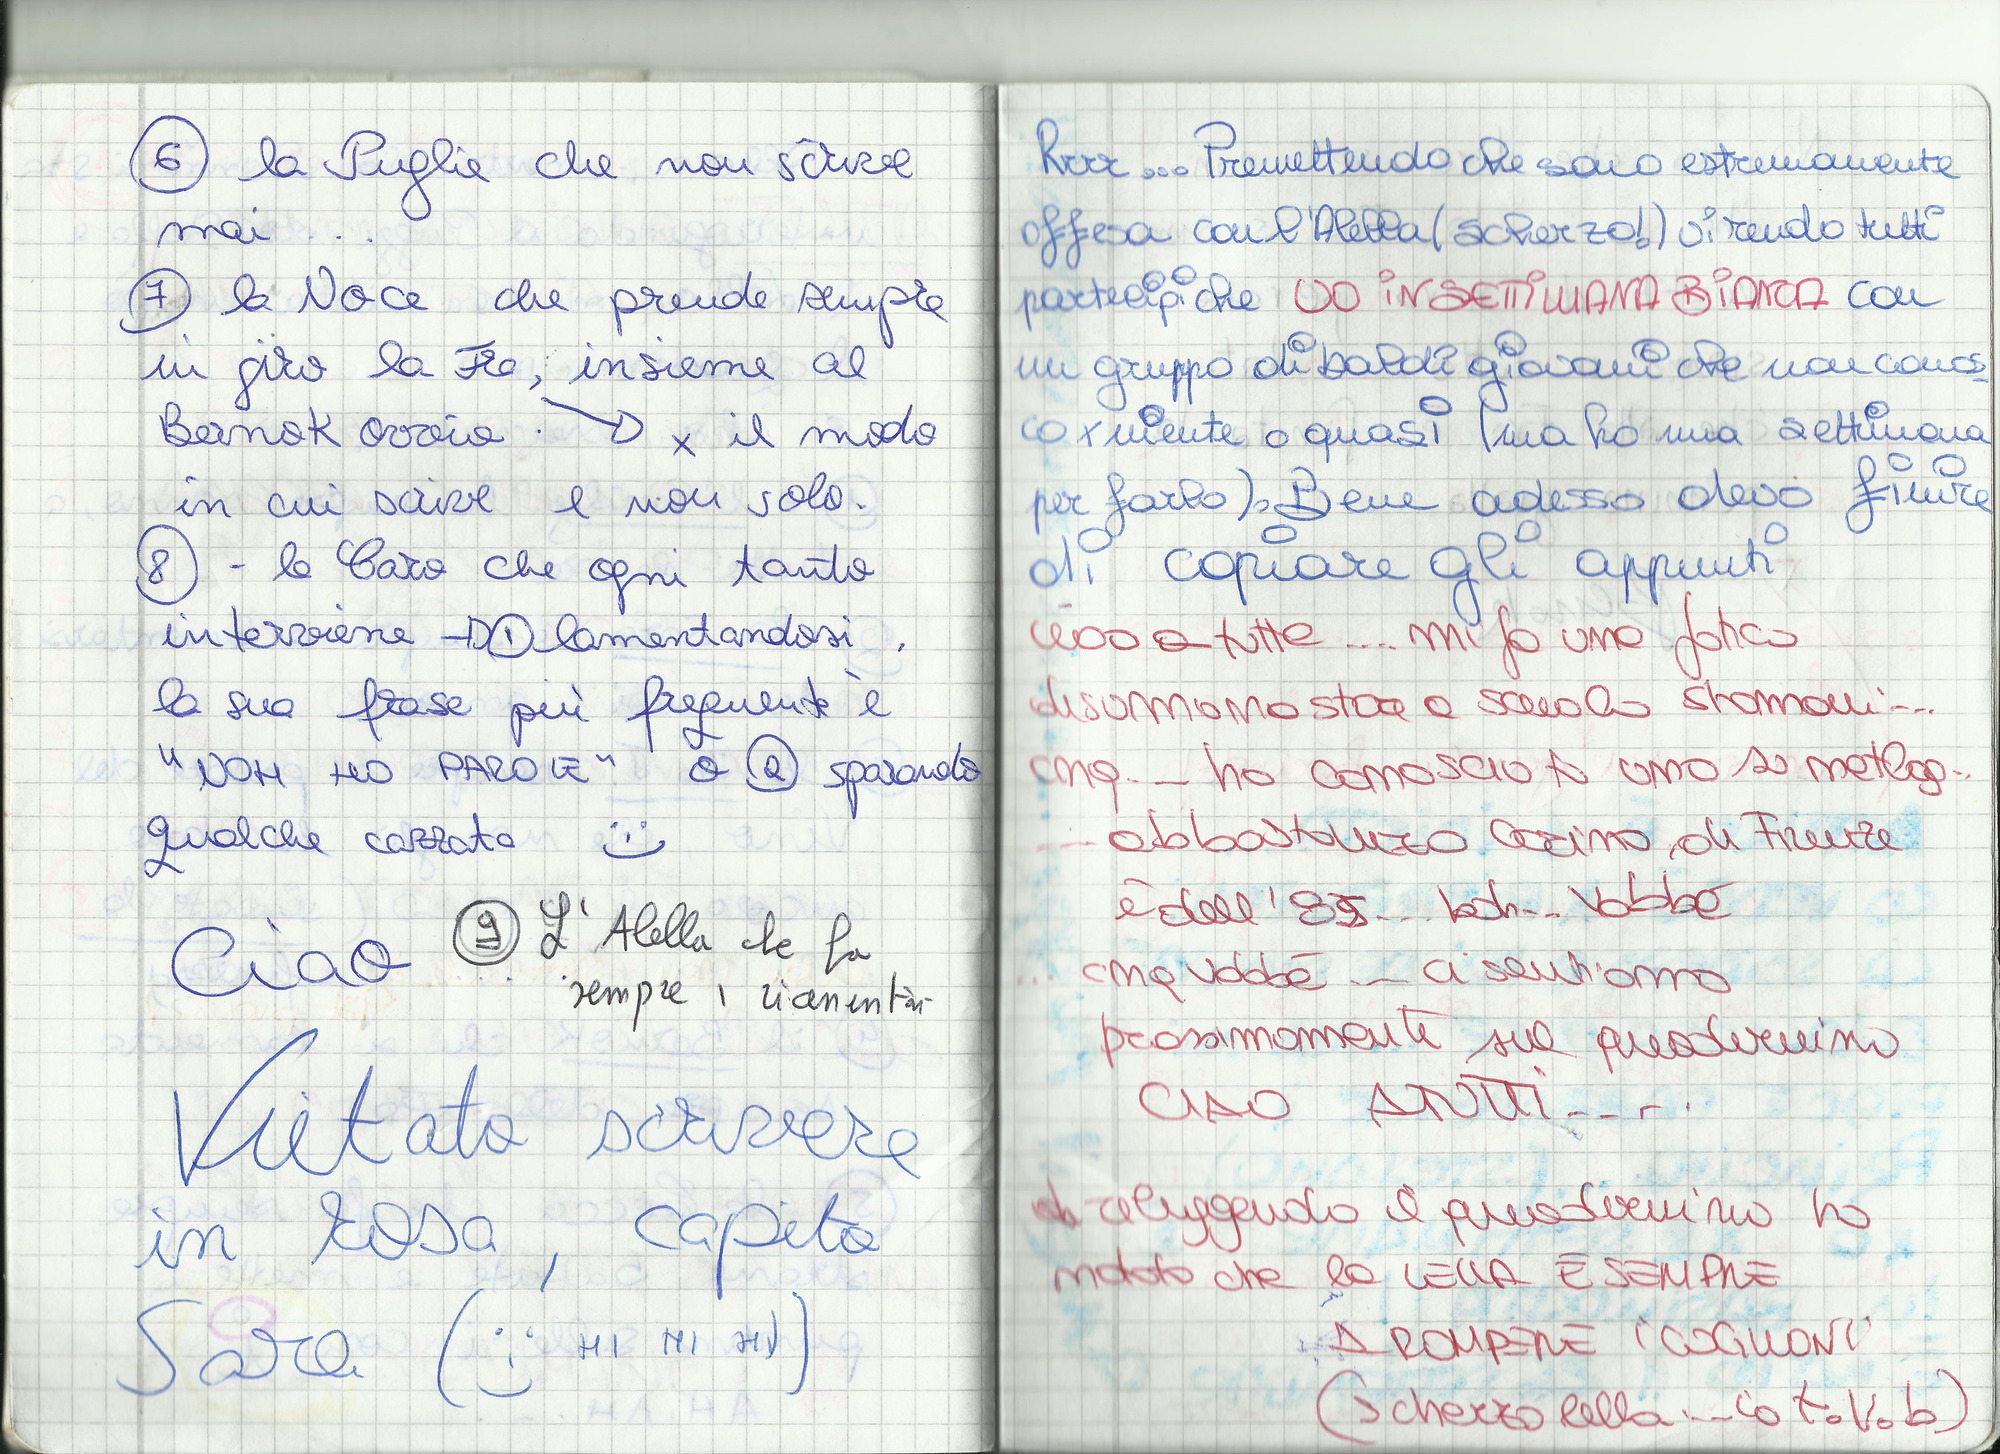 6 la Puglie che non scrive
mai ...
7 la Noce che prende sempre
in giro la Fre, insieme al
Bernok ovvio. → x il modo
in cui scrive e non solo.
8 - la Caro che ogni tanto
interviene → 1 lamentandosi,
la sua frase più frequente è
"NON HO PAROLE" o 2 sparando
qualche cazzata :)
Ciao
9 L'Alella che fa
sempre i ricamentini
Vietato scrivere
in rosa, capito
Sara (:) HI HI HI)
Rrrr... Premettendo che sono estremamente
offesa con l'Alella (scherzo!) vi rendo tutti
partecipi che VO IN SETTIMANA BIANCA con
un gruppo di baldi giovani che non conos-
co x niente o quasi (ma ho una settimana
per farlo). Bene adesso devo finire
di copiare gli appunti
ciao a tutte .... mi fa una fatica
disumana stare a scuola stamani...
cmq... ho conosciuto uno su metlog..
... abbastanza carino, di Firenze
è dell'85... boh... vabbè
... cmq vabbè ... ci sentiamo
prossimamente sul quadernino
CIAO A TUTTI....
rileggendo il quadernino ho
notato che la LELLA È SEMPRE
A ROMPERE I COGLIONI
(scherzo lella ... io t.v.b)